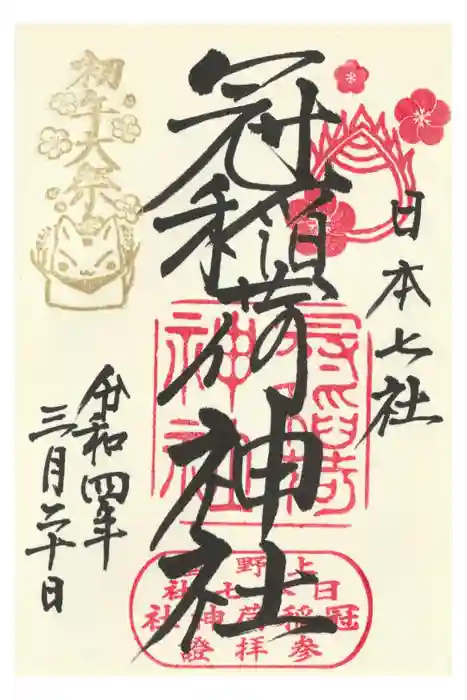 日本七社
冠稲荷神社
初午大祭
令和四年
三月二十日
冠稲荷
神社
上野
日本七社
冠稲荷神社
參拝證